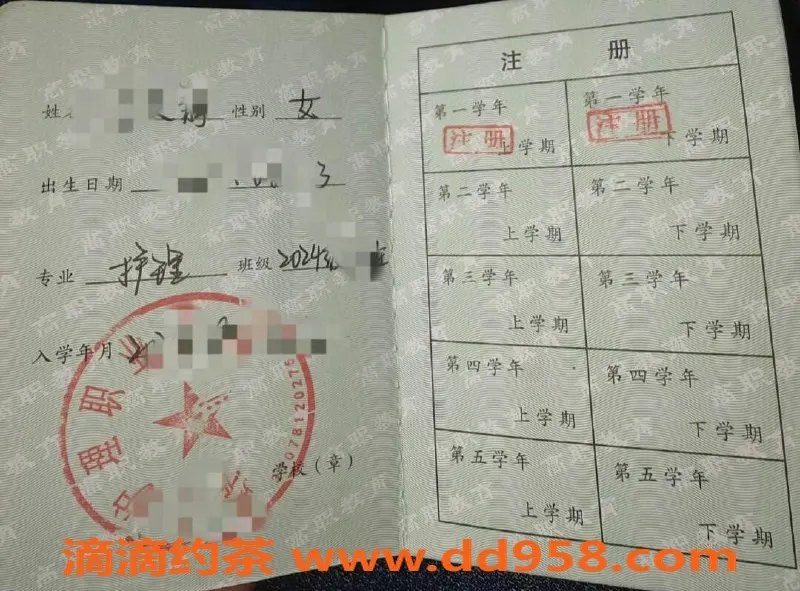 注 册
姓 性别 女
出生日期 3
专业 护理 班级 2024
入学年月
学校（章）
078120275
第一学年 注册 上学期
第一学年 注册 下学期
第二学年 上学期
第二学年 下学期
第三学年 上学期
第三学年 下学期
第四学年 上学期
第四学年 下学期
第五学年 上学期
第五学年 下学期
高职教育
滴滴约茶 www.dd958.com